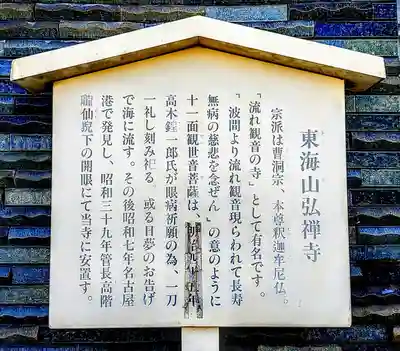 東海山弘禅寺
宗派は曹洞宗、本尊釈迦牟尼仏。
「流れ観音の寺」として有名です。
『波間より流れ観音現らわれて長寿
無病の慈悲を念ぜん。』の意のように
十一面観世音菩薩は、
高木鉦一郎氏が眼病祈願の為、一刀
一礼し刻み祀る。或る日夢のお告げ
で海に流す。その後昭和七年名古屋
港で発見し、昭和三十九年管長高階
瓏仙猊下の開眼にて当寺に安置す。